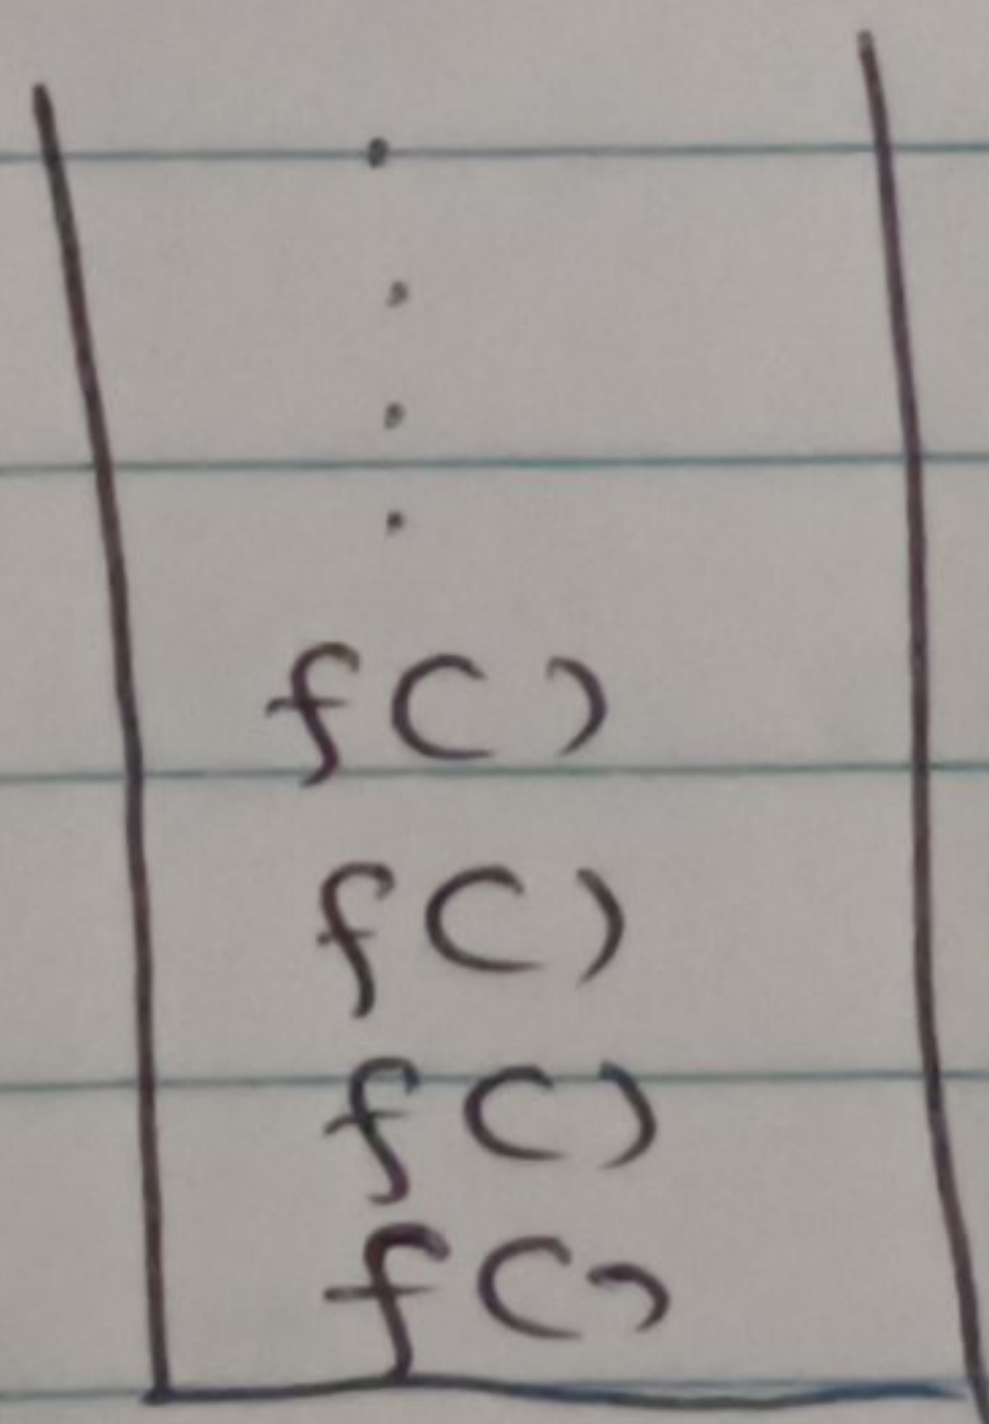 .
.
.
.
f()
f()
f()
f()